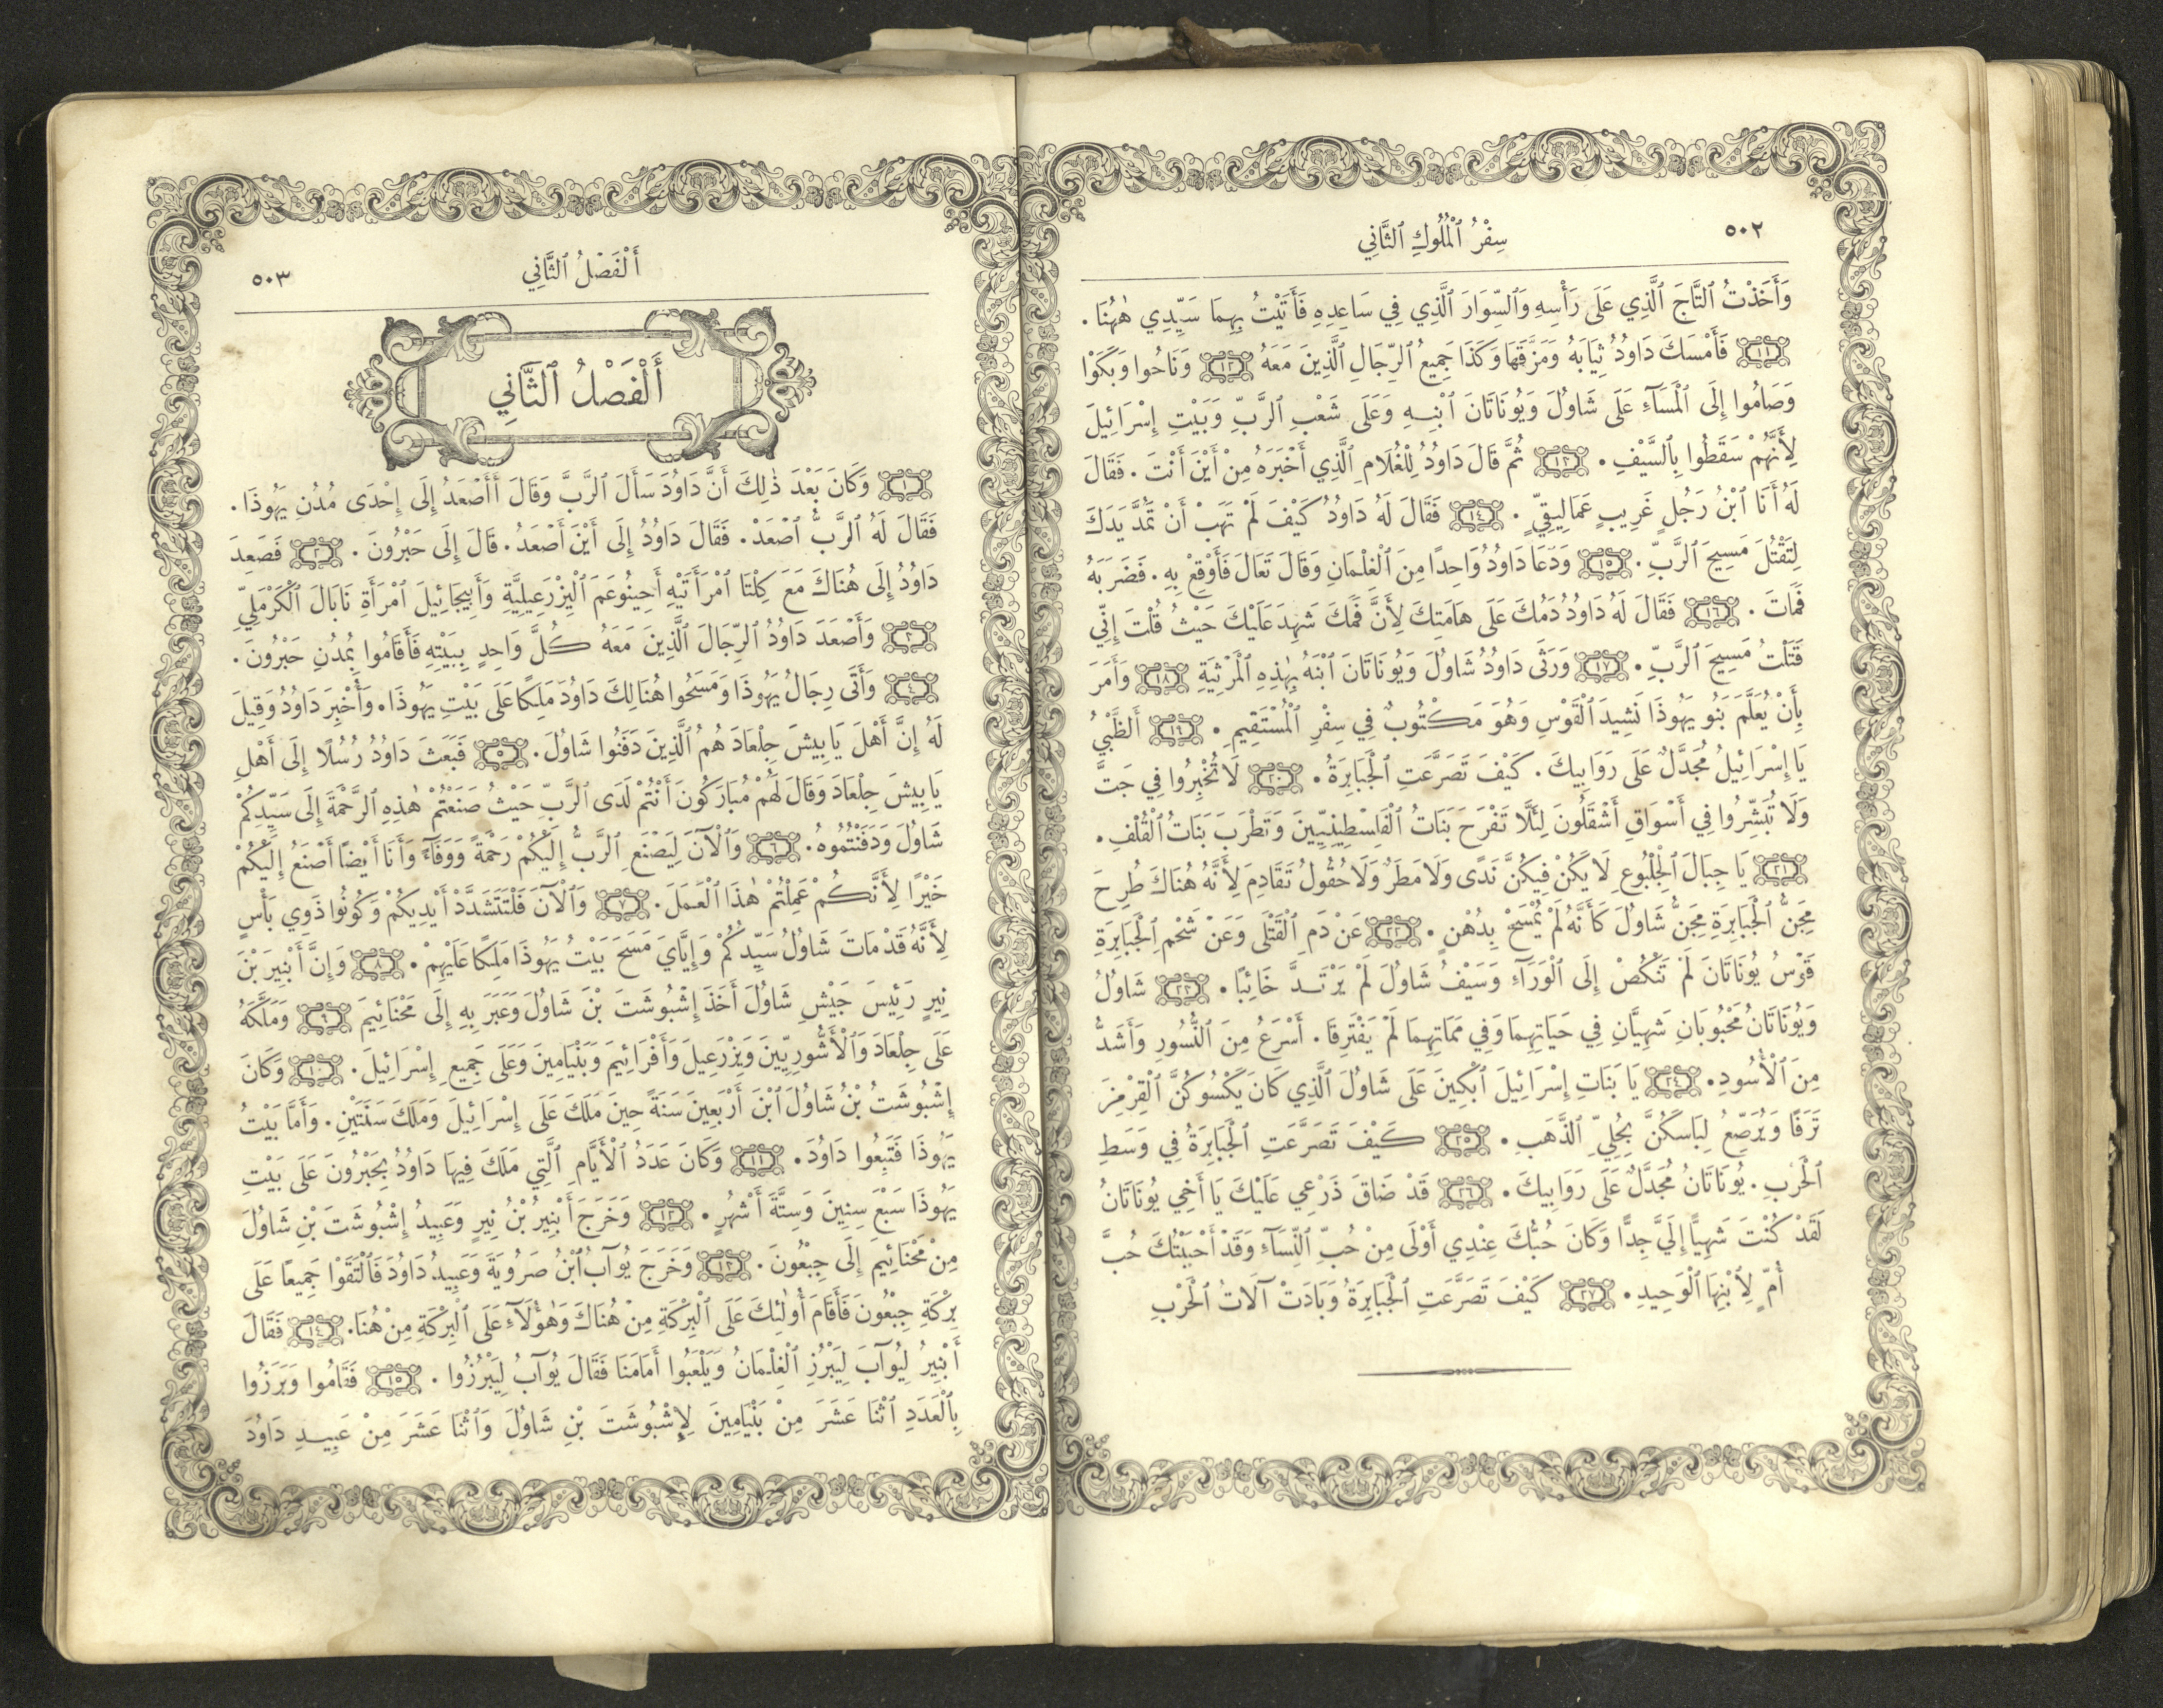 ٥٠٢
سِفْرُ ٱلْمُلُوكِ ٱلثَّانِي
وَأَخَذْتُ ٱلتَّاجَ ٱلَّذِي عَلَى رَأْسِهِ وَٱلسِّوَارَ ٱلَّذِي فِي سَاعِدِهِ فَأَتَيْتُ بِهِمَا سَيِّدِي هٰهُنَا.
١١ فَأَمْسَكَ دَاوُدُ ثِيَابَهُ وَمَزَّقَهَا وَكَذَا جَمِيعُ ٱلرِّجَالِ ٱلَّذِينَ مَعَهُ ١٢ وَنَاحُوا وَبَكَوْا
وَصَامُوا إِلَى ٱلْمَسَآءِ عَلَى شَاوُلَ وَيُونَاتَانَ ٱبْنِهِ وَعَلَى شَعْبِ ٱلرَّبِّ وَبَيْتِ إِسْرَائِيلَ
لِأَنَّهُمْ سَقَطُوا بِٱلسَّيْفِ. ١٣ ثُمَّ قَالَ دَاوُدُ لِلْغُلَامِ ٱلَّذِي أَخْبَرَهُ مِنْ أَيْنَ أَنْتَ. فَقَالَ
لَهُ أَنَا ٱبْنُ رَجُلٍ غَرِيبٍ عَمَالِيقِيٍّ. ١٤ فَقَالَ لَهُ دَاوُدُ كَيْفَ لَمْ تَهَبْ أَنْ تَمُدَّ يَدَكَ
لِتَقْتُلَ مَسِيحَ ٱلرَّبِّ. ١٥ وَدَعَا دَاوُدُ وَاحِدًا مِنَ ٱلْغِلْمَانِ وَقَالَ تَعَالَ فَأَوْقِعْ بِهِ. فَضَرَبَهُ
فَمَاتَ. ١٦ فَقَالَ لَهُ دَاوُدُ دَمُكَ عَلَى هَامَتِكَ لِأَنَّ فَمَكَ شَهِدَ عَلَيْكَ حَيْثُ قُلْتَ إِنِّي
قَتَلْتُ مَسِيحَ ٱلرَّبِّ. ١٧ وَرَثَى دَاوُدُ شَاوُلَ وَيُونَاتَانَ ٱبْنَهُ بِهٰذِهِ ٱلْمَرْثِيَةِ ١٨ وَأَمَرَ
بِأَنْ يُعَلَّمَ بَنُو يَهُوذَا نَشِيدَ ٱلْقَوْسِ وَهُوَ مَكْتُوبٌ فِي سِفْرِ ٱلْمُسْتَقِيمِ. ١٩ أَلظَّبْيُ
يَا إِسْرَائِيلُ مُجَدَّلٌ عَلَى رَوَابِيكَ. كَيْفَ تَصَرَّعَتِ ٱلْجَبَابِرَةُ. ٢٠ لَا تُخْبِرُوا فِي جَتَّ
وَلَا تُبَشِّرُوا فِي أَسْوَاقِ أَشْقَلُونَ لِئَلَّا تَفْرَحَ بَنَاتُ ٱلْفَلِسْطِينِيِّينَ وَتَطْرَبَ بَنَاتُ ٱلْقُلْفِ.
٢١ يَا جِبَالَ ٱلْجِلْبُوعِ لَا يَكُنْ فِيكُنَّ نَدًى وَلَا مَطَرٌ وَلَا حُقُولُ تَقَادِمَ لِأَنَّهُ هُنَاكَ طُرِحَ
مِجَنُّ ٱلْجَبَابِرَةِ مِجَنُّ شَاوُلَ كَأَنَّهُ لَمْ يُمْسَحْ بِدُهْنٍ. ٢٢ عَنْ دَمِ ٱلْقَتْلَى وَعَنْ شَحْمِ ٱلْجَبَابِرَةِ
قَوْسُ يُونَاتَانَ لَمْ تَنْكُصْ إِلَى ٱلْوَرَآءِ وَسَيْفُ شَاوُلَ لَمْ يَرْتَدَّ خَائِبًا. ٢٣ شَاوُلُ
وَيُونَاتَانُ مَحْبُوبَانِ شَهِيَّانِ فِي حَيَاتِهِمَا وَفِي مَمَاتِهِمَا لَمْ يَفْتَرِقَا. أَسْرَعُ مِنَ ٱلنُّسُورِ وَأَشَدُّ
مِنَ ٱلْأُسُودِ. ٢٤ يَا بَنَاتِ إِسْرَائِيلَ ٱبْكِينَ عَلَى شَاوُلَ ٱلَّذِي كَانَ يَكْسُوكُنَّ ٱلْقِرْمِزَ
تَرَفًا وَيُرَصِّعُ لِبَاسَكُنَّ بِحُلِيِّ ٱلذَّهَبِ. ٢٥ كَيْفَ تَصَرَّعَتِ ٱلْجَبَابِرَةُ فِي وَسَطِ
ٱلْحَرْبِ. يُونَاتَانُ مُجَدَّلٌ عَلَى رَوَابِيكَ. ٢٦ قَدْ ضَاقَ ذَرْعِي عَلَيْكَ يَا أَخِي يُونَاتَانُ
لَقَدْ كُنْتَ شَهِيًّا إِلَيَّ جِدًّا وَكَانَ حُبُّكَ عِنْدِي أَوْلَى مِنْ حُبِّ ٱلنِّسَآءِ وَقَدْ أَحْبَبْتُكَ حُبَّ
أُمٍّ لِٱبْنِهَا ٱلْوَحِيدِ. ٢٧ كَيْفَ تَصَرَّعَتِ ٱلْجَبَابِرَةُ وَبَادَتْ آلَاتُ ٱلْحَرْبِ
أَلْفَصْلُ ٱلثَّانِي
٥٠٣
أَلْفَصْلُ ٱلثَّانِي
١ وَكَانَ بَعْدَ ذٰلِكَ أَنَّ دَاوُدَ سَأَلَ ٱلرَّبَّ وَقَالَ أَأَصْعَدُ إِلَى إِحْدَى مُدُنِ يَهُوذَا.
فَقَالَ لَهُ ٱلرَّبُّ ٱصْعَدْ. فَقَالَ دَاوُدُ إِلَى أَيْنَ أَصْعَدُ. قَالَ إِلَى حَبْرُونَ. ٢ فَصَعِدَ
دَاوُدُ إِلَى هُنَاكَ مَعَ كِلْتَا ٱمْرَأَتَيْهِ أَحِينُوعَمَ ٱلْيِزْرَعِيلِيَّةِ وَأَبِيجَائِيلَ ٱمْرَأَةِ نَابَالَ ٱلْكَرْمَلِيِّ
٣ وَأَصْعَدَ دَاوُدُ ٱلرِّجَالَ ٱلَّذِينَ مَعَهُ كُلَّ وَاحِدٍ بِبَيْتِهِ فَأَقَامُوا بِمُدُنِ حَبْرُونَ.
٤ وَأَتَى رِجَالُ يَهُوذَا وَمَسَحُوا هُنَالِكَ دَاوُدَ مَلِكًا عَلَى بَيْتِ يَهُوذَا. وَأُخْبِرَ دَاوُدُ وَقِيلَ
لَهُ إِنَّ أَهْلَ يَابِيشَ جِلْعَادَ هُمُ ٱلَّذِينَ دَفَنُوا شَاوُلَ. ٥ فَبَعَثَ دَاوُدُ رُسُلًا إِلَى أَهْلِ
يَابِيشَ جِلْعَادَ وَقَالَ لَهُمْ مُبَارَكُونَ أَنْتُمْ لَدَى ٱلرَّبِّ حَيْثُ صَنَعْتُمْ هٰذِهِ ٱلرَّحْمَةَ إِلَى سَيِّدِكُمْ
شَاوُلَ وَدَفَنْتُمُوهُ. ٦ وَٱلْآنَ لِيَصْنَعِ ٱلرَّبُّ إِلَيْكُمْ رَحْمَةً وَوَفَآءً وَأَنَا أَيْضًا أَصْنَعُ إِلَيْكُمْ
خَيْرًا لِأَنَّكُمْ عَمِلْتُمْ هٰذَا ٱلْعَمَلَ. ٧ وَٱلْآنَ فَلْتَتَشَدَّدْ أَيْدِيكُمْ وَكُونُوا ذَوِي بَأْسٍ
لِأَنَّهُ قَدْ مَاتَ شَاوُلُ سَيِّدُكُمْ وَإِيَّايَ مَسَحَ بَيْتُ يَهُوذَا مَلِكًا عَلَيْهِمْ. ٨ وَإِنَّ أَبْنِيرَ بْنَ
نِيرٍ رَئِيسَ جَيْشِ شَاوُلَ أَخَذَ إِشْبُوشَتَ بْنَ شَاوُلَ وَعَبَرَ بِهِ إِلَى مَحْنَائِيمَ ٩ وَمَلَّكَهُ
عَلَى جِلْعَادَ وَٱلْأَشُّورِيِّينَ وَيِزْرَعِيلَ وَأَفْرَائِيمَ وَبَنْيَامِينَ وَعَلَى جَمِيعِ إِسْرَائِيلَ. ١٠ وَكَانَ
إِشْبُوشَتُ بْنُ شَاوُلَ ٱبْنَ أَرْبَعِينَ سَنَةً حِينَ مَلَكَ عَلَى إِسْرَائِيلَ وَمَلَكَ سَنَتَيْنِ. وَأَمَّا بَيْتُ
يَهُوذَا فَتَبِعُوا دَاوُدَ. ١١ وَكَانَ عَدَدُ ٱلْأَيَّامِ ٱلَّتِي مَلَكَ فِيهَا دَاوُدُ بِحَبْرُونَ عَلَى بَيْتِ
يَهُوذَا سَبْعَ سِنِينَ وَسِتَّةَ أَشْهُرٍ. ١٢ وَخَرَجَ أَبْنِيرُ بْنُ نِيرٍ وَعَبِيدُ إِشْبُوشَتَ بْنِ شَاوُلَ
مِنْ مَحْنَائِيمَ إِلَى جِبْعُونَ. ١٣ وَخَرَجَ يُوآبُ ٱبْنُ صَرُويَةَ وَعَبِيدُ دَاوُدَ فَٱلْتَقَوْا جَمِيعًا عَلَى
بِرْكَةِ جِبْعُونَ فَأَقَامَ أُولٰئِكَ عَلَى ٱلْبِرْكَةِ مِنْ هُنَاكَ وَهٰؤُلَآءِ عَلَى ٱلْبِرْكَةِ مِنْ هُنَا. ١٤ فَقَالَ
أَبْنِيرُ لِيُوآبَ لِيَبْرُزِ ٱلْغِلْمَانُ وَيَلْعَبُوا أَمَامَنَا فَقَالَ يُوآبُ لِيَبْرُزُوا. ١٥ فَقَامُوا وَبَرَزُوا
بِٱلْعَدَدِ ٱثْنَا عَشَرَ مِنْ بَنْيَامِينَ لِإِشْبُوشَتَ بْنِ شَاوُلَ وَٱثْنَا عَشَرَ مِنْ عَبِيدِ دَاوُدَ